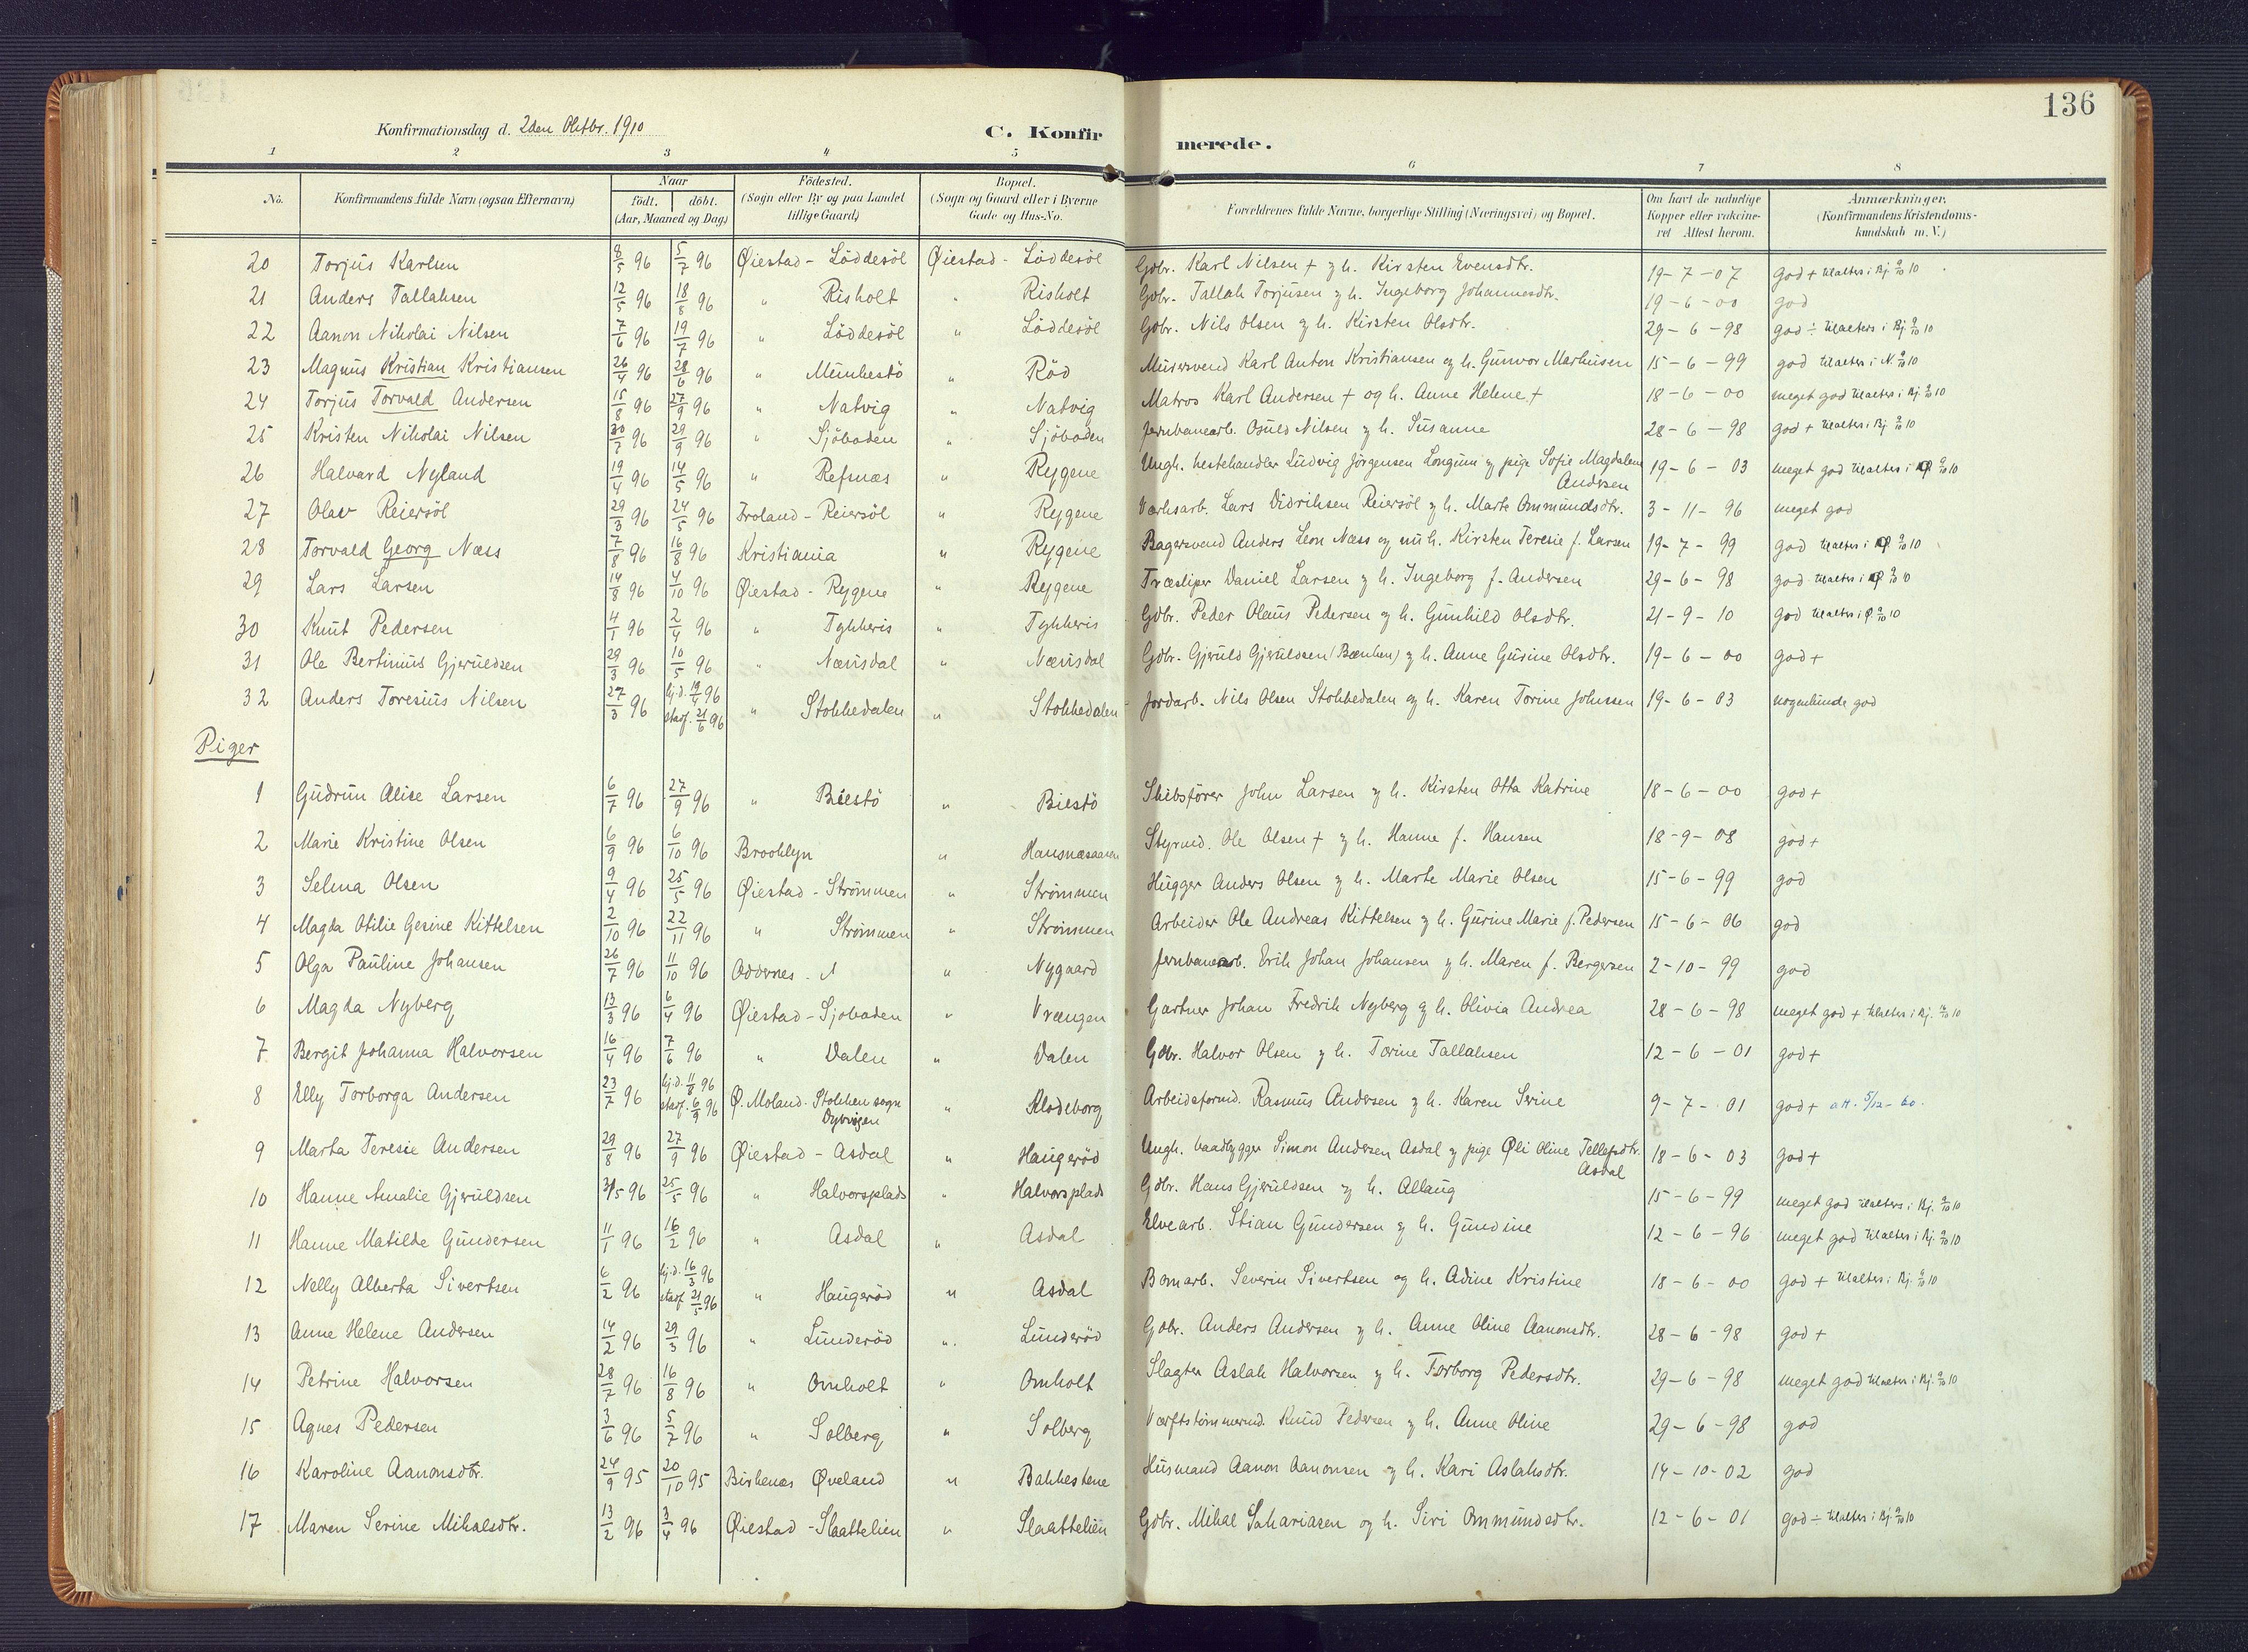 136
Konfirmationsdag d. 2den Oktbr. 1910
C. Konfirmerede.
1 2 3 4 5 6 7 8
No. Konfirmandens fulde Navn (ogsaa Efternavn) Naar født. døbt. (Aar, Maaned og Dag) Fødested. (Sogn eller By og paa Landet tillige Gaard) Bopæl. (Sogn og Gaard eller i Byerne Gade og Hus-No. Forældrenes fulde Navne, borgerlige Stilling (Næringsvei) og Bopæl. Om havt de naturlige Kopper eller vakcineret Attest herom. Anmærkninger. (Konfirmandens Kristendomskundskab m. V.)
20 Torjus Karlsen 8/5 96 5/7 96 Øiestad - Løddesøl Øiestad - Løddesøl Gdbr. Karl Nilsen + og h. Kirsten Evensdtr. 19-7-07 god + tilalters i Bj. 9/10 10
21 Anders Tallaksen 12/5 96 18/8 96 " Risholt " Risholt Gdbr. Tallak Torjusen og h. Ingeborg Johannesdtr. 19-6-00 god
22 Aanon Nikolai Nilsen 7/6 96 19/7 96 " Løddesøl " Løddesøl Gdbr. Nils Olsen og h. Kirsten Olsdtr. 29-6-98 god ÷ tilalters i Bj. 9/10 10
23 Magnus Kristian Kristiansen 26/4 96 28/6 96 " Munkestø " Rød Murersvend Karl Anton Kristiansen og h. Gunvor Markusen 15-6-99 god tilalters i N. 9/10 10
24 Torjus Torvald Andersen 15/8 96 27/9 96 " Natvig " Natvig Matros Karl Andersen + og h. Anne Helene + 18-6-00 meget god tilalters i Bj. 9/10 10
25 Kristen Nikolai Nilsen 30/7 96 29/9 96 " Sjøboden " Sjøboden Jernbanearb. Osuld Nilsen og h. Susanne 28-6-98 god + tilalters i Bj. 9/10 10
26 Halvard Nyland 19/4 96 14/5 96 " Refsnæs " Rygene Ungk. hestehandler Ludvig Jørgensen Longum og pige Sofie Magdalene Andersen 19-6-03 meget god tilalters i Ø 9/10 10
27 Olav Reiersøl 29/3 96 24/5 96 Froland - Reiersøl " Rygene Værksarb. Lars Didriksen Reiersøl og h. Marte Ommundsdtr. 3-11-96 meget god
28 Torvald Georg Næss 7/8 96 16/8 96 Kristiania " Rygene Bagersvend Anders Leon Næss og nu h. Kirsten Teresie f. Larsen 19-7-99 god tilalters i Ø 9/10 10
29 Lars Larsen 14/8 96 4/10 96 Øiestad - Rygene " Rygene Træsliper Daniel Larsen og h. Ingeborg f. Andersen 29-6-98 god tilalters i Ø 9/10 10
30 Knut Pedersen 4/1 96 2/4 96 " Tykheris " Tykheris Gdbr. Peder Olaus Pedersen og h. Gunhild Olsdtr. 21-9-10 god tilalters i Ø. 9/10 10
31 Ole Bertinius Gjeruldsen 29/3 96 10/5 96 " Næsusdal " Næsusdal Gdbr. Gjeruld Gjeruldsen (Bænken) og h. Anne Gurine Olsdtr. 19-6-00 god +
32 Anders Toresius Nilsen 27/3 96 hj.d. 19/4 96 stadf. 21/6 96 " Stokkedalen " Stokkedalen Jordarb. Nils Olsen Stokkedalen og h. Karen Torine Johnsen 19-6-03 nogenlunde god
Piger
1 Gudrun Alise Larsen 6/7 96 27/9 96 " Biestø " Biestø Skibsfører John Larsen og h. Kirsten Otta Katrine 18-6-00 god +
2 Marie Kristine Olsen 6/9 96 6/10 96 Brooklyn " Hansnæsaasen Styrmd. Ole Olsen + og h. Hanne f. Hansen 18-9-08 god +
3 Selma Olsen 9/4 96 25/5 96 Øiestad - Strømmen " Strømmen Hugger Anders Olsen og h. Marte Marie Olsen 15-6-99 god
4 Magda Otilie Gesine Kittelsen 2/10 96 22/11 96 " Strømmen " Strømmen Arbeider Ole Andreas Kittelsen og h. Gurine Marie f. Pedersen 15-6-06 god
5 Olga Pauline Johansen 26/7 96 11/10 96 Oddernes " Nygaard Jernbanearb. Erik Johan Johansen og h. Maren f. Bergersen 2-10-99 god
6 Magda Nyberg 13/3 96 6/4 96 Øiestad - Sjøboden " Vrængen Gartner Johan Fredrik Nyberg og h. Olivia Andrea 28-6-98 meget god + tilalters i Bj. 9/10 10
7 Bergit Johanna Halvorsen 16/4 96 7/6 96 " Dalen " Dalen Gdbr. Halvor Olsen og h. Torine Tallaksen 12-6-01 god +
8 Elly Torborga Andersen 23/7 96 hj.d. 11/8 96 stadf. 6/9 96 Ø. Moland - Stokken sogn Dybvigen " Klodeborg Arbeidsformd. Rasmus Andersen og h. Karen Serine 9-7-01 god + att. 5/12-60.
9 Marta Teresie Andersen 29/8 96 27/9 96 Øiestad - Asdal " Haugerød Ungk. baadbygger Simon Andersen Asdal og pige Øli Oline Tellefsdtr. Asdal 18-6-03 god +
10 Hanne Amalie Gjeruldsen 3/5 96 25/5 96 " Halvorsplads " Halvorsplads Gdbr. Hans Gjeruldsen og h. Allaug 15-6-99 meget god tilalters i Bj. 9/10 10
11 Hanne Matilde Gundersen 11/1 96 16/2 96 " Asdal " Asdal Elvearb. Stian Gundersen og h. Gundine 12-6-96 meget god tilalters i Bj. 9/10 10
12 Nelly Alberta Sivertsen 6/2 96 hj.d. 16/3 96 stadf 21/5 96 " Haugerød " Asdal Bomarb. Severin Sivertsen og h. Adine Kristine 18-6-00 god + tilalters i Bj. 9/10 10
13 Anne Helene Andersen 14/2 96 29/3 96 " Lunderød " Lunderød Gdbr. Anders Andersen og h. Anne Oline Aanonsdtr. 28-6-98 god +
14 Petrine Halvorsen 28/7 96 16/8 96 " Omholt " Omholt Slagter Aslak Halvorsen og h. Torborg Pedersdtr. 29-6-98 meget god tilalters i Bj. 9/10 10
15 Agnes Pedersen 3/6 96 5/7 96 " Solberg " Solberg Værftstømmermd. Knud Pedersen og h. Anne Oline 29-6-98 god
16 Karoline Aanonsdtr. 24/9 95 20/10 95 Birkenæs Øveland " Bakkestene Husmand Aanon Aanonsen og h. Kari Aslaksdtr. 14-10-02 god
17 Maren Serine Mikalsdtr. 13/2 96 3/4 96 Øiestad - Slaattelien " Slaattelien Gdbr. Mikal Sakariasen og h. Siri Ommundsdtr. 12-6-01 god ÷ tilalters i Bj 9/10 10